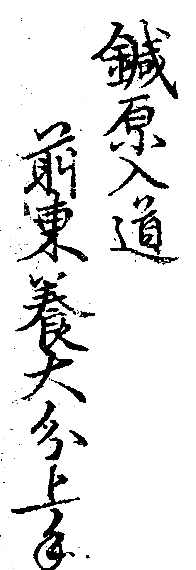 鍼原入道
前東養大分上手